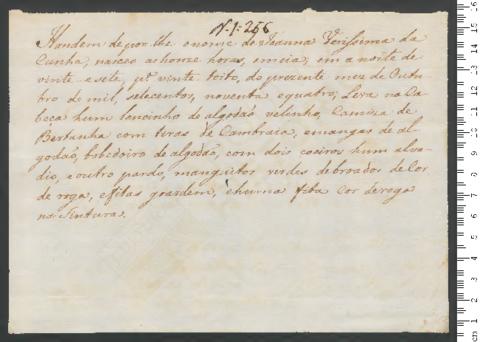 N. 1: 256
Handem de por lhe o nome de Joanna Verissima da
Cunha, nasceo as honze horas, emeia, em a noite de
vinte esete, pª vente toito, do prezente mez de Outu
bro de mil, setecentos, noventa equatro, Leva na Ca
beça hum lencinho de algodaõ velinho, Camiza de
Bertanha com tiras de Cambraia, emangas de al
godaõ, babedoiro de algodaõ, com dois coeiros hum alva
dio, eoutro pardo, manguitos verdes debroados de Cor
de roza, efitas guardem, ehuma fita Cor deroza
na Sintura.